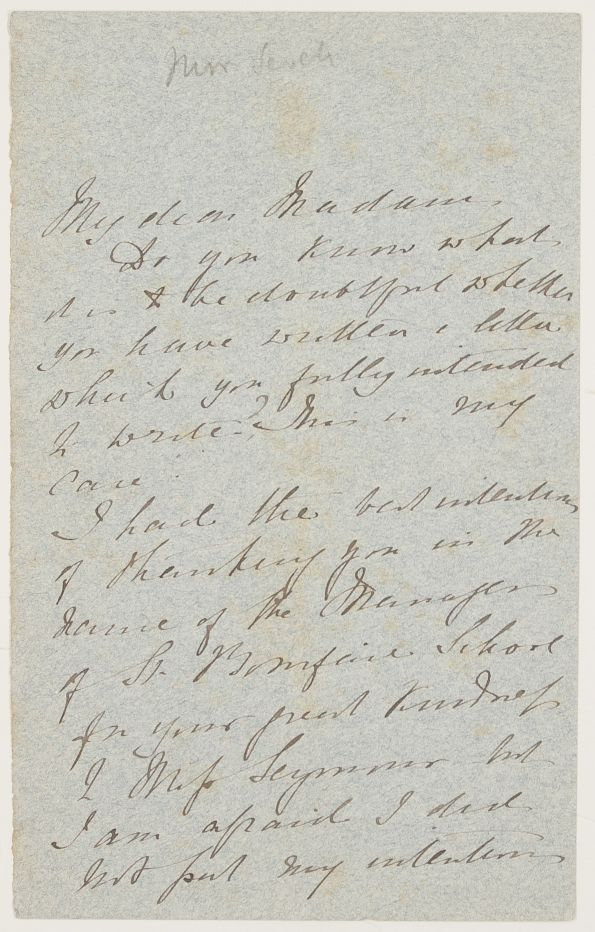 My dear Madam,
Do you know what
it is to be doubtful whether
you have written a letter
which you fully intended
to write? This is my
case
I had the best intentions
of thanking you in the
name of the Managers
of St. Boniface School
for your great kindness
to Miss Seymour but
I am afraid I did
not put my intentions